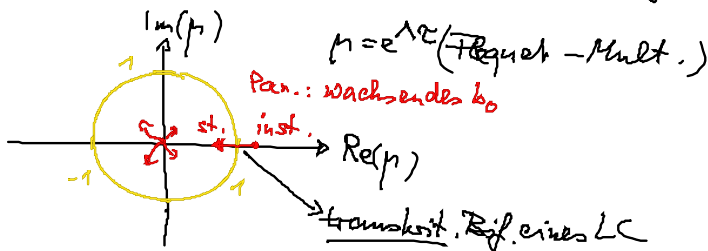 Im(μ)
μ = e^Λτ (Floquet - Mult.)
1
Par.: wachsendes b₀
st. inst.
Re(μ)
-1
1
transkrit. Bif. eines LC